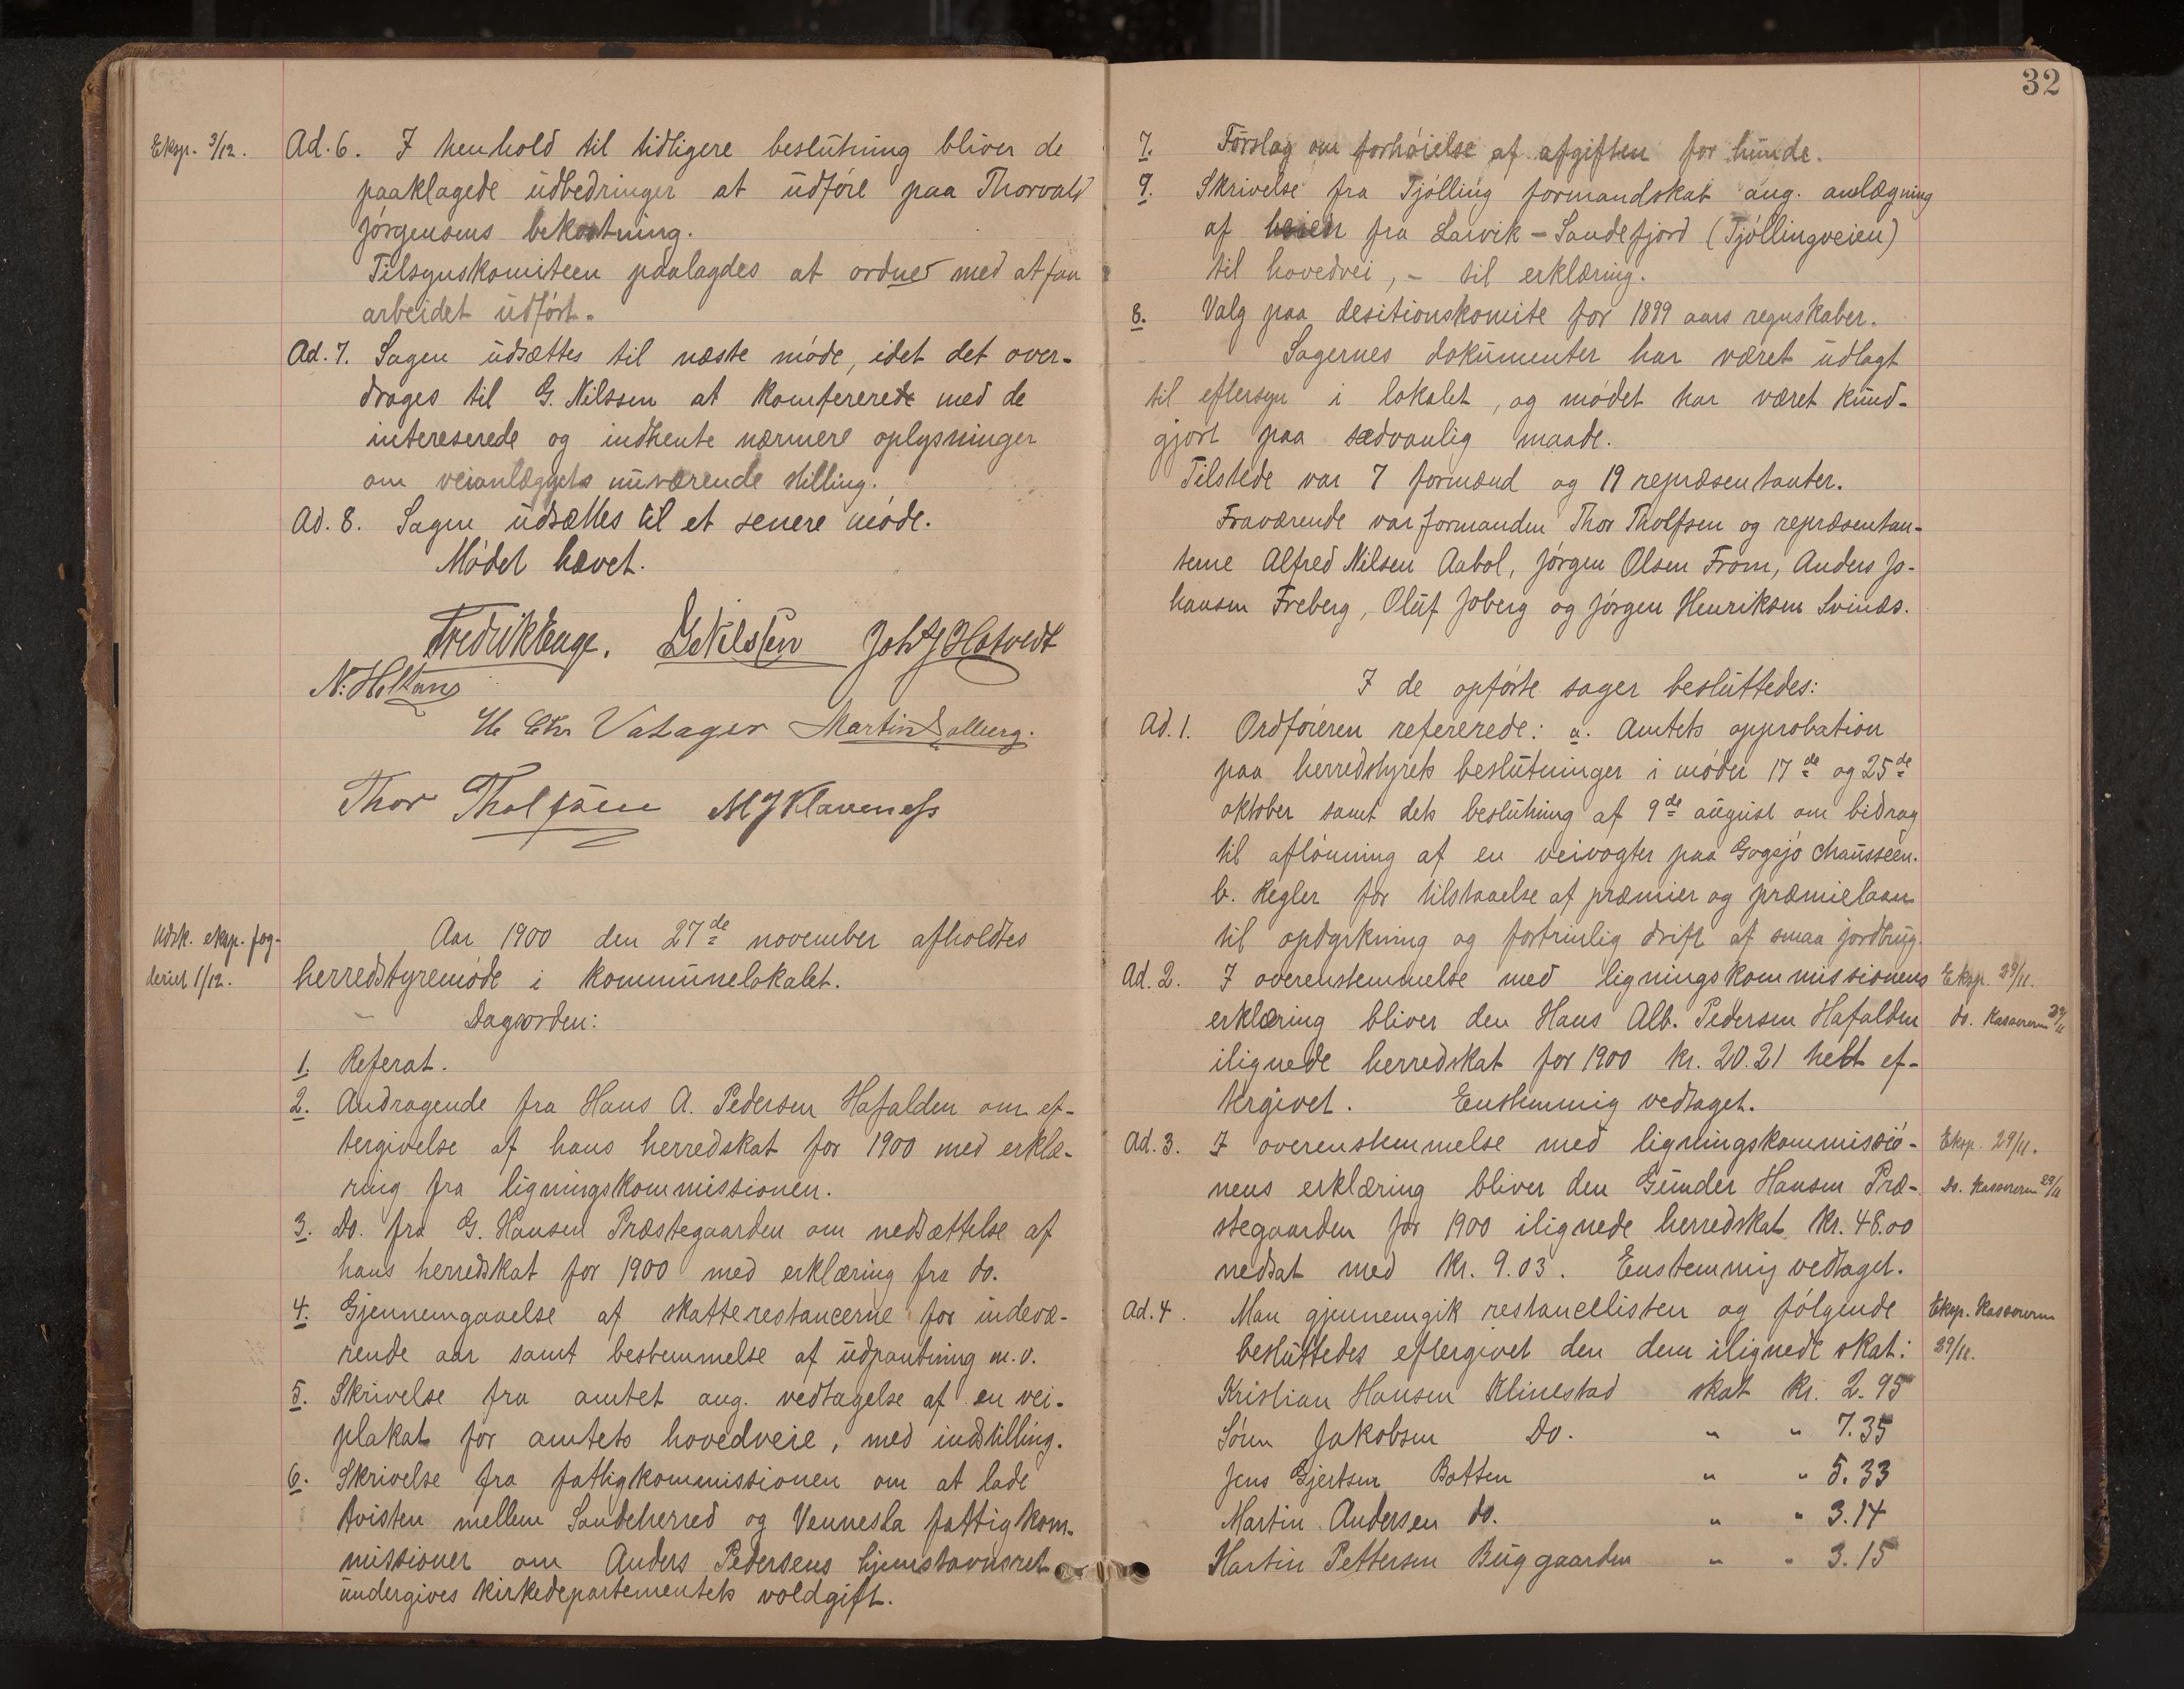 Eksp. 3/12.
Ad. 6. I henhold til tidligere beslutning bliver de
paaklagede udbedringer at udføre paa Thorvald
Jørgensens bekostning.
Tilsynskomiteen paalagdes at ordne med at faa
arbeidet udført.
Ad. 7. Sagen udsættes til næste møde, idet det over-
drages til G. Nilssen at konferere med de
intereserede og indhente nærmere oplysninger
om veianlæggets nuværende stilling.
Ad. 8. Sagen udsættes til et senere møde.
Mødet hævet.
Fredrik Enge. G Nilssen Joh J Hotvedt
N. Heltans
H Chr Vatager Martin Dalberg.
Thor Tholfsen M J Klaveness
Udsk. eksp. fog-
deriet 1/12.
Aar 1900 den 27de november afholdtes
herredstyremøde i kommunelokalet.
Dagsorden:
1. Referat.
2. Andragende fra Hans A. Pedersen Hafalden om ef-
tergivelse af hans herredskat for 1900 med erklæ-
ring fra ligningskommissionen.
3. Do. fra G. Hansen Præstegaarden om nedsættelse af
hans herredskat for 1900 med erklæring fra do.
4. Gjennemgaaelse af skatterestancerne for indevæ-
rende aar samt bestemmelse af udpantning m.v.
5. Skrivelse fra amtet ang. vedtagelse af en vei-
plakat for amtets hovedveie, med indstilling.
6. Skrivelse fra fattigkommissionen om at lade
tvisten mellem Sandeherred og Vennesla fattigkom-
missioner om Anders Pedersens hjemstavnsret
undergives kirkedepartementets voldgift.
32
7. Forslag om forhøielse af afgiften for hunde.
9. Skrivelse fra Tjølling formandskab ang. anlægning
af veien fra Larvik - Sandefjord (Tjøllingveien)
til hovedvei, - til erklæring.
8. Valg paa desitionskomite for 1899 aars regnskaber.
Sagernes dokumenter har været udlagt
til eftersyn i lokalet, og mødet har været kund-
gjort paa sædvanlig maade.
Tilstede var 7 formænd og 19 repræsentanter.
Fraværende var formanden Thor Tholfsen og repræsentan-
terne Alfred Nilsen Aabol, Jørgen Olsen From, Anders Jo-
hansen Freberg, Oluf Joberg og Jørgen Henriksen Svinæs.
I de opførte sager besluttedes:
Ad. 1. Ordføreren refererede: a. Amtets approbation
paa herredstyrets beslutninger i møder 17de og 25de
oktober samt dets beslutning af 9de august om bidrag
til aflønning af en veivogter paa Gogsjø chausseen.
b. Regler for tilstaaelse af præmier og præmielaan
til opdyrkning og fortrinlig drift af smaa jordbrug.
Ad. 2. I overenstemmelse med ligningskommissionens
erklæring bliver den Hans Alb. Pedersen Hafalden
ilignede herredskat for 1900 kr. 20.21 helt ef-
tergivet. Enstemmig vedtaget.
Eksp. 29/11.
do. Kassereren 29/11
Ad. 3. I overenstemmelse med ligningskommissio-
nens erklæring bliver den Gunder Hansen Præ-
stegaarden for 1900 ilignede herredskat kr. 48.00
nedsat med kr. 9.03. Enstemmig vedtaget.
Eksp. 29/11.
do. Kassereren 29/11
Ad. 4. Man gjennemgik restancelisten og følgende
besluttedes eftergivet den dem ilignede skat:
Eksp. Kassereren
29/11.
Kristian Hansen Klinestad skat kr. 2.95
Søren Jakobsen Do. " " 7.35
Jens Gjertsen Botten " " 5.33
Martin Andersen do. " " 3.14
Martin Pettersen Buggaarden " " 3.15